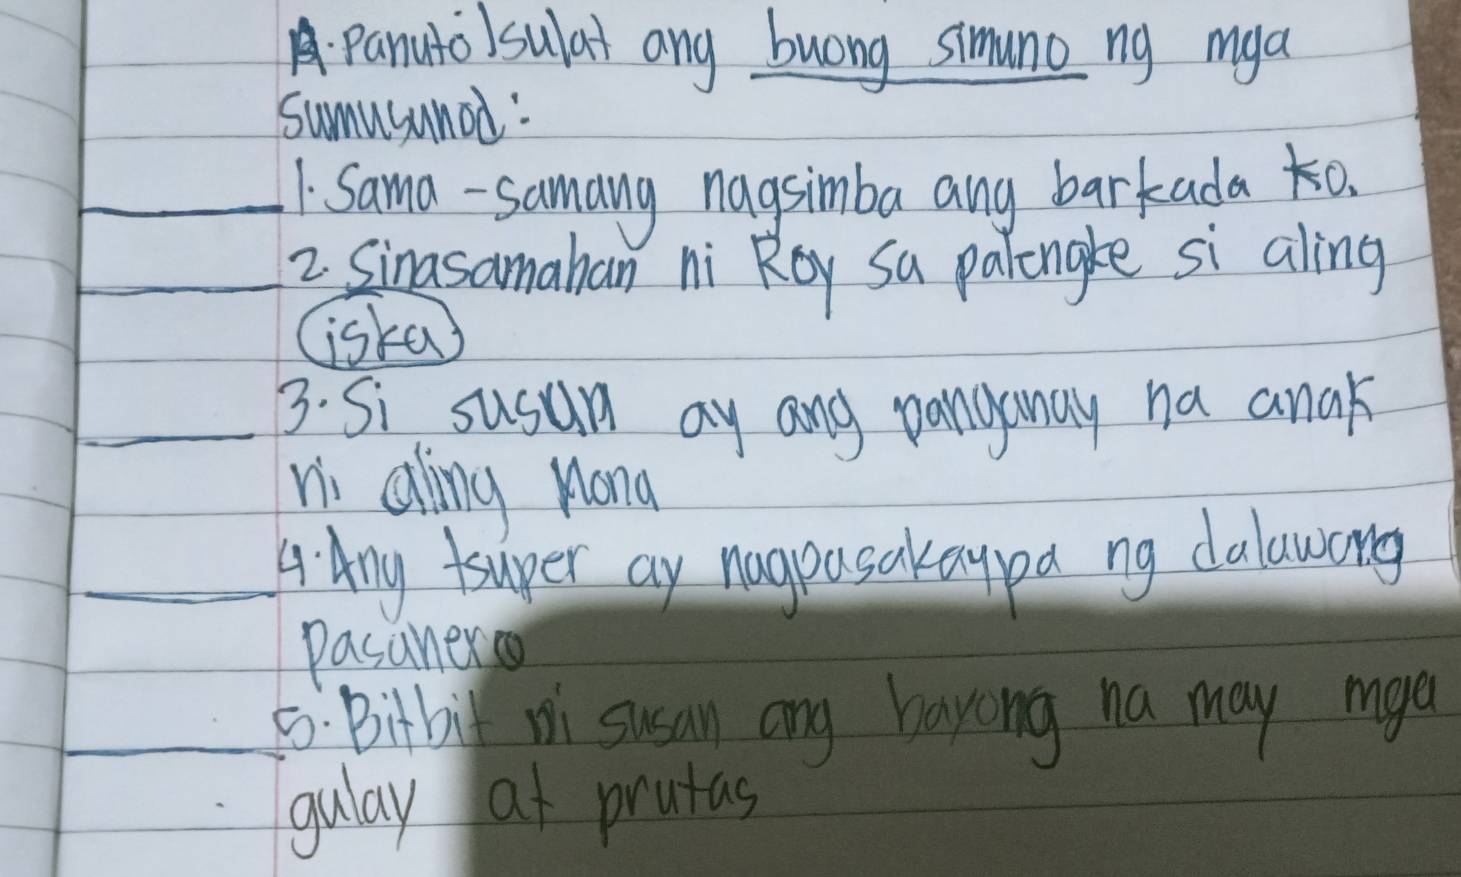 A. Panuto Isulat ang buong simuno ng mga
sumusunod:
1. Sama-samang nagsimba ang barkada ko.
2. Sinasamahan ni Roy sa palengke si aling
iska
3. Si susan ay ang panganay na anak
ni aling Mona
4. Ang tsuper ay nagpasakaypa ng dalawang
pasahero
5. Bitbit ni susan ang bayong na may mga
gulay at prutas